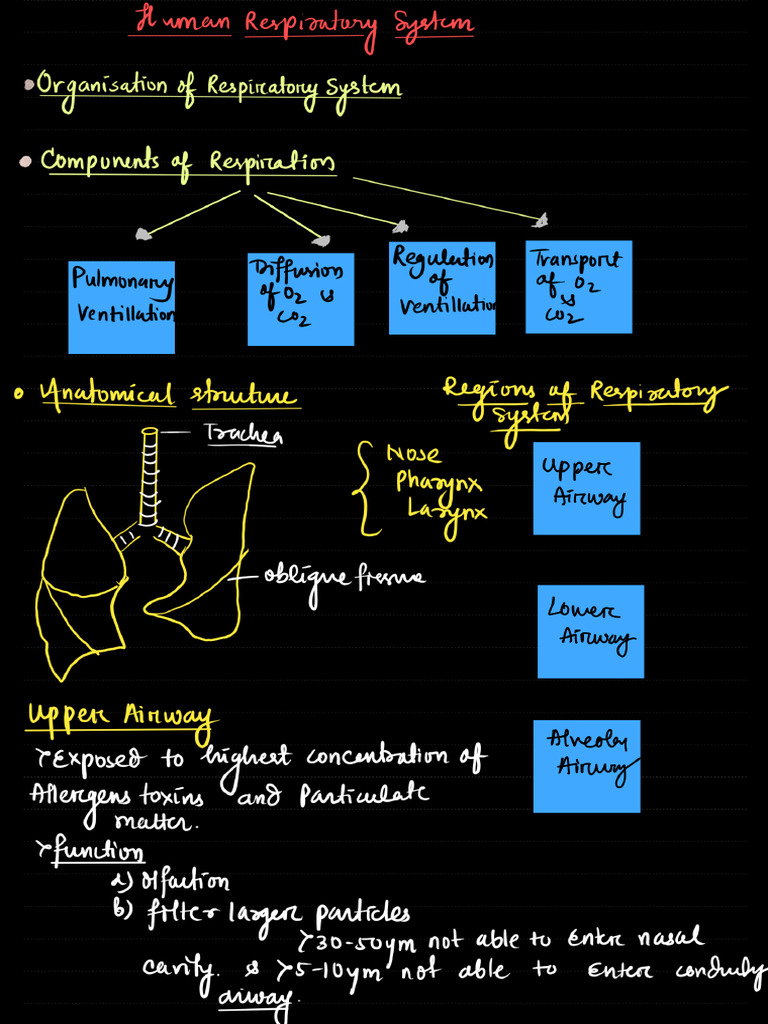 Human Respiratory System
Organisation of Respiratory System
Components of Respiration
Pulmonary
Ventillation
Diffusion
of O2 &
CO2
Regulation
of
Ventillation
Transport
of O2
&
CO2
Anatomical struture
Trachea
oblique
Regions of Respiratory
System
Nose
Pharynx
Larynx
Upper
Airway
Lower
Airway
Airway
Upper Airway
Exposed to highest concentration of
Allergens toxins and Particulate
matter.
function
a) olfaction
b) filter larger particles
>30-50ym not able to enter nasal
cavity. & >5-10ym not able to enter
airway.